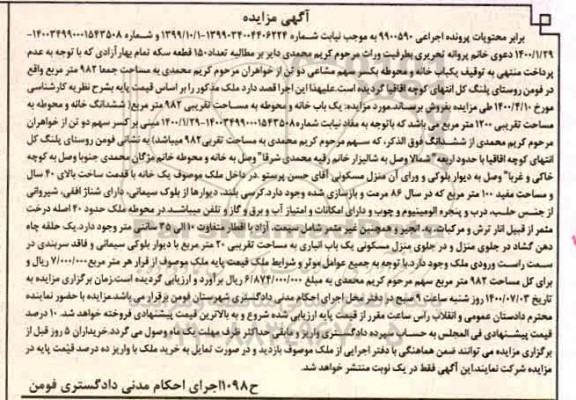 آگهی مزایده
برابر محتویات پرونده اجرایی ۹۹۰۰۵۹۰ به موجب نیابت شماره ۱۳۹۹۰۳۴۰۰۴۴۰۶۲۲۴-۱۳۹۹/۱۰/۱ و شماره ۱۴۰۰۳۴۹۹۰۰۰۱۵۴۳۵۰۸-
۱۴۰۰/۱/۲۹ دعوی خانم پروانه تحریری بطرفیت وراث مرحوم کریم محمدی دایر بر مطالبه تعداد۱۵۰ قطعه سکه تمام بهارآزادی که با توجه به عدم
پرداخت منتهی به توقیف یکباب خانه و محوطه یکسر سهم مشاعی دو تن از خواهران مرحوم کریم محمدی به مساحت جمعا ۹۸۲ متر مربع واقع
در فومن روستای پلنگ کل انتهای کوچه اقاقیا گردیده است.علیهذا این اجرا قصد دارد ملک مذکور را بر اساس قیمه پایه بشرح نظریه کارشناسی
مورخ ۱۴۰۰/۴/۱۰ طی مزایده بفروش برساند.مورد مزایده: یک باب خانه و محوطه به مساحت تقریبی ۹۸۲ متر مربع( ششدانگ خانه و محوطه به
مساحت تقریبی ۱۲۰۰ متر مربع می باشد که باتوجه به مفاد نیابت شماره۱۴۰۰۳۴۹۹۰۰۰۱۵۴۳۵۰۸-۱۴۰۰/۱/۲۹ مبنی برکسر سهم دو تن از خواهران
مرحوم کریم محمدی از ششدانگ فوق الذکر، که سهم مرحوم کریم محمدی به مساحت تقریبی۹۸۲ میباشد) به نشانی فومن روستای پلنگ کل
انتهای کوچه اقاقیا با حدود اربعه "شمالا وصل به شالیزار خانم رقیه محمدی شرقا" وصل به خانه و محوطه خانم مژگان محمدی جنوبا وصل به کوچه
خاکی و غربا" وصل به دیوار بلوکی و ورای آن منزل مسکونی آقای حسن پرستو .در داخل ملک موصوف یک خانه با قدمت ساخت بالای ۴۰ سال
و مساحت مفید ۱۰۰ متر مربع که در سال ۸۶ مرمت و بازسازی شده وجود دارد.کرسی بلند، دیوارها از بلوک سیمانی، دارای شناژ افقی، شیروانی
از جنس حلب، درب و پنجره الومینیوم و چوب و دارای امکانات و امتیاز آب و برق و گاز و تلفن میباشد.در محوطه ملک حدود ۴۰ اصله درخت
مثمر از قبیل انار ترش و مرکبات، به، انجیر و همچنین غیر مثمر شامل سپیدار، آزاد با قطار متفاوت ۱۰ الی ۵۰ سانتی متر وجود دارد.یک حلقه چاه
دهن گشاد در جلوی منزل و در جلوی منزل مسکونی یک باب انباری به مساحت تقریبی ۲۰ متر مربع با دیوار بلوکی سیمانی و فاقد سربندی در
سمت راست ورودی ملک وجود دارد.با توجه به جمیع عوامل موثر و شرایط ملک قیمت پایه ملک موصوف از قرار هر متر مربع ۷/۰۰۰/۰۰۰ ریال و
برای کل مساحت ۹۸۲ متر مربع سهم مرحوم کریم محمدی به مبلغ ۶/۸۷۴/۰۰۰/۰۰۰ ریال برآورد و ارزیابی گردیده است.زمان برگزاری مزایده به
تاریخ ۱۴۰۰/۰۷/۰۳ روز شنبه ساعت ۹صبح در دفتر محل اجرای احکام مدنی دادگستری شهرستان فومن برقرار می باشد.مزایده با حضور نماینده
محترم دادستان عمومی و انقلاب راس ساعت مقرر از قیمت پایه ارزیابی شده شروع و به بالاترین قیمت پیشنهادی فروخته خواهد شد. ۱۰ درصد
قیمت پیشنهادی فی المجلس به حساب سپرده دادگستری واریز و مابقی حداکثر ظرف مهلت یک ماه وصول می گردد.خریداران ۵ روز قبل از
برگزاری مزایده می توانند ضمن هماهنگی با دفتر اجرایی از ملک موصوف بازدید و در صورت تمایل به خرید ملک با واریز ده درصد قیمت پایه در
مزایده شرکت نمایند.این آگهی فقط در یک نوبت منتشر خواهد شد.
ح۱۰۹۸اجرای احکام مدنی دادگستری فومن